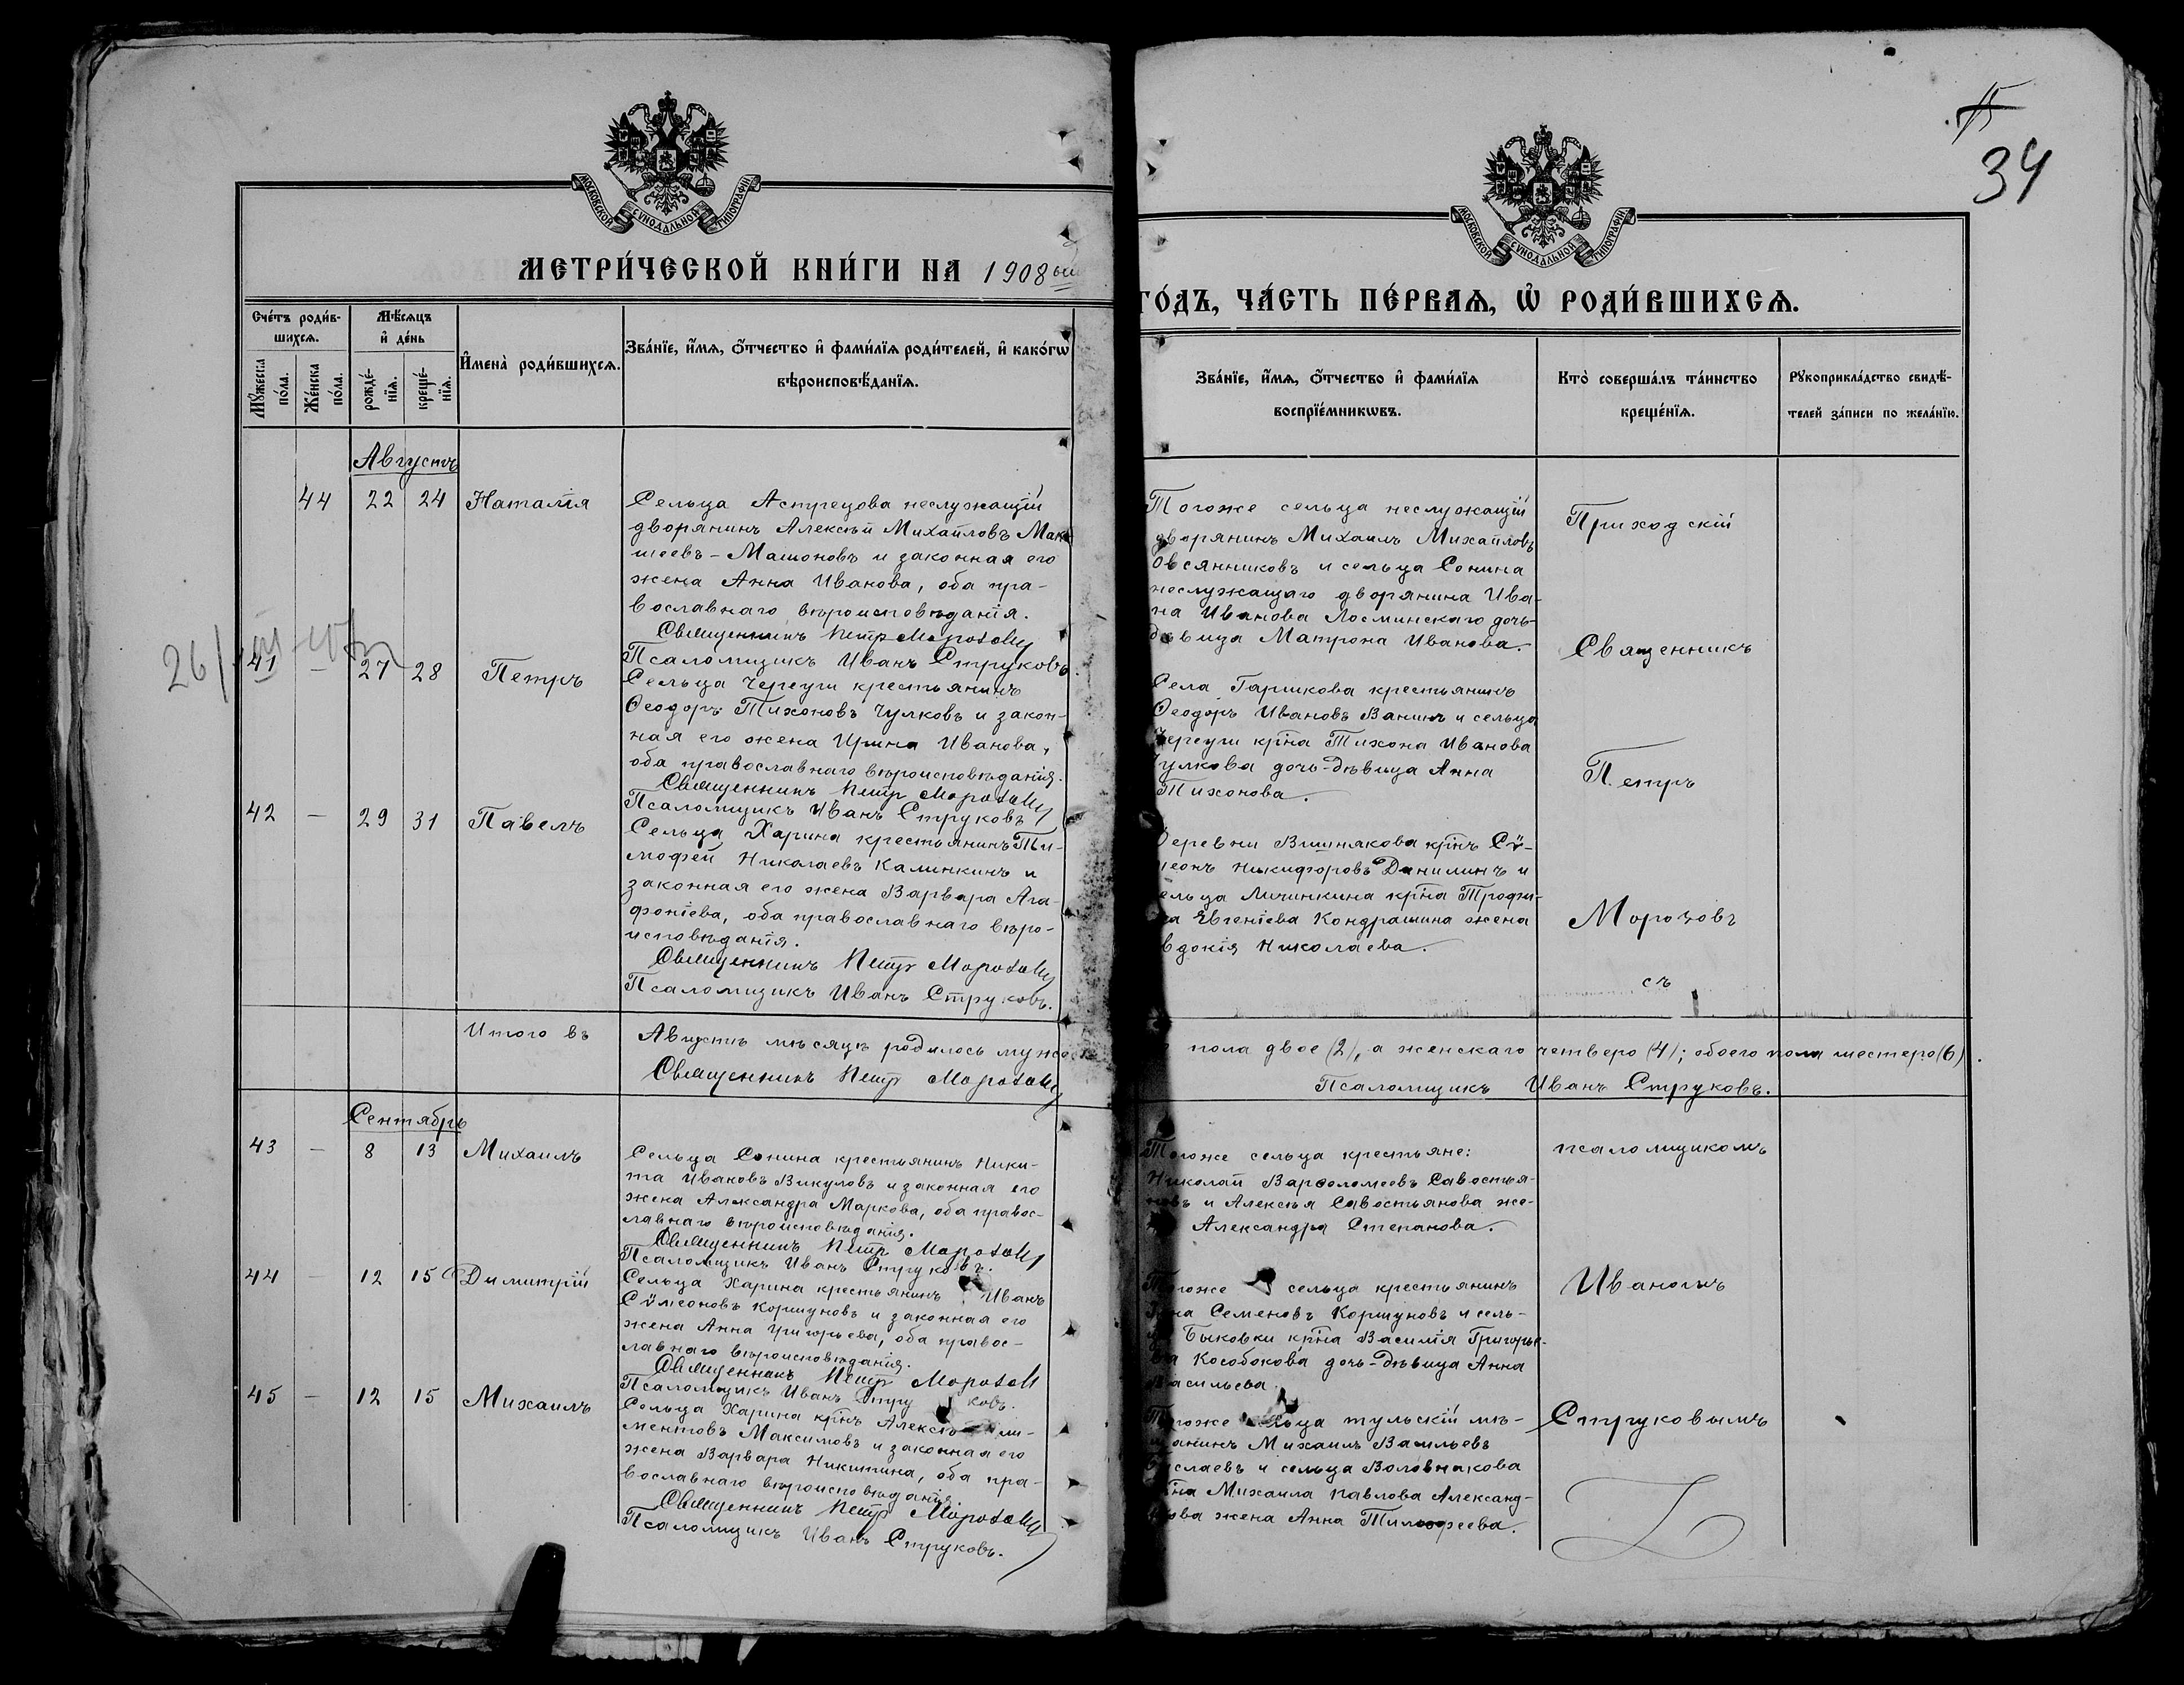 15
34
МОСКОВСКОЙ СѴНОДАЛЬНОЙ ТИПОГРАФІИ
МОСКОВСКОЙ СѴНОДАЛЬНОЙ ТИПОГРАФІИ
МЕТРИ́ЧЕСКОЙ КНИ́ГИ НА 1908ый
ГО́ДЪ, ЧА́СТЬ ПЕ́РВАѦ, Ѡ҆ РОДИ́ВШИХСѦ.
Сче́тъ роди́в-
шихсѧ.
Мѣ́сѧцъ
и҆ де́нь
Мꙋ́жеска
по́ла.
Же́нска
по́ла.
рожде́-
нїѧ.
креще́-
нїѧ.
И҆мена̀ роди́вшихсѧ.
Зва́нїе, и҆́мѧ, ѻ҆́тчество и҆ фами́лїѧ роди́телей, и҆ како́гѡ
вѣроисповѣ́данїѧ.
Зва́нїе, и҆́мѧ, ѻ҆́тчество и҆ фами́лїѧ
воспрїе́мникѡвъ.
Кто̀ соверша́лъ та́инство
креще́нїѧ.
Рꙋкоприкла́дство свидѣ́-
телей за́писи по жела́нїю.
Августъ
44 22 24 Наталія
Сельца Астрецова неслужащій
дворянинъ Алексѣй Михайловъ Мак
шеевъ-Машоновъ и законная его
жена Анна Иванова, оба пра-
вославнаго вѣроисповѣданія.
Священникъ Петръ Морозовъ
Псаломщикъ Иванъ Струковъ.
Тогоже сельца неслужащій
дворянинъ Михаилъ Михайловъ
Овсянниковъ и сельца Сонина
неслужащаго дворянина Ива-
на Иванова Лосминскаго дочь-
дѣвица Матрона Иванова.
Приходскій
Священникъ
Петръ
Морозовъ
съ
26/
41 – 27 28 Петръ
Сельца Чересуги крестьянинъ
Ѳеодоръ Тихоновъ Чулковъ и закон-
ная его жена Ирина Иванова,
оба православнаго вѣроисповѣданія.
Священникъ Петръ Морозовъ
Псаломщикъ Иванъ Струковъ
Села Гаршкова крестьянинъ
Ѳеодоръ Ивановъ Ванинъ и сельца
кр҃на Тихона Иванова
Чулкова дочь-дѣвица Анна
Тихонова.
42 – 29 31 Павелъ
Сельца Харина крестьянинъ Ти-
мофей Николаевъ Калинкинъ и
законная его жена Варвара Ага-
фоніева, оба православнаго вѣро-
исповѣданія.
Священникъ Петръ Морозовъ
Псаломщикъ Иванъ Струковъ.
Деревни Вишнякова кр҃нъ Сѵ-
меонъ Никифоровъ Данилинъ и
сельца Мичинкина кр҃на Трофи-
ма Евгеніева Кондрашина жена
Евдокія Николаева.
Итого въ Августѣ мѣсяцѣ родилось мужс
пола двое (2), а женскаго четверо (4); обоего пола шестеро (6).
Священникъ Петръ Морозовъ
Псаломщикъ Иванъ Струковъ.
Сентябрь
43 – 8 13 Михаилъ
Сельца Сонина крестьянинъ Ники-
та Ивановъ Викуловъ и законная его
жена Александра Маркова, оба правос-
лавнаго вѣроисповѣданія.
Священникъ Петръ Морозовъ
Псаломщикъ Иванъ Струковъ.
Тогоже сельца крестьяне:
Николай Варѳоломеевъ Савостья-
новъ и Алексѣя Савостьянова же-
на Александра Степанова.
псаломщикомъ
Иваномъ
Струковымъ
44 – 12 15 Димитрій
Сельца Харина крестьянинъ Иванъ
Сѵмеоновъ Коршуновъ и законная его
жена Анна Григорьева, оба правос-
лавнаго вѣроисповѣданія.
Священникъ Петръ Морозовъ
Псаломщикъ Иванъ Струковъ.
Тогоже сельца крестьянинъ
Семеновъ Коршуновъ и сель-
ца Быковки кр҃на Василія Григорье-
ва Кособокова дочь-дѣвица Анна
Васильева.
45 – 12 15 Михаилъ
Сельца Харина кр҃нъ Алексѣй Кли-
ментовъ Максимовъ и законная его
жена Варвара Никитина, оба пра-
вославнаго вѣроисповѣданія.
Священникъ Петръ Морозовъ
Псаломщикъ Иванъ Струковъ.
Тогоже сельца тульскій мѣ-
щанинъ Михаилъ Васильевъ
и сельца Воловнакова
кр҃на Михаила Павлова Александ-
рова жена Анна Тимофеева.